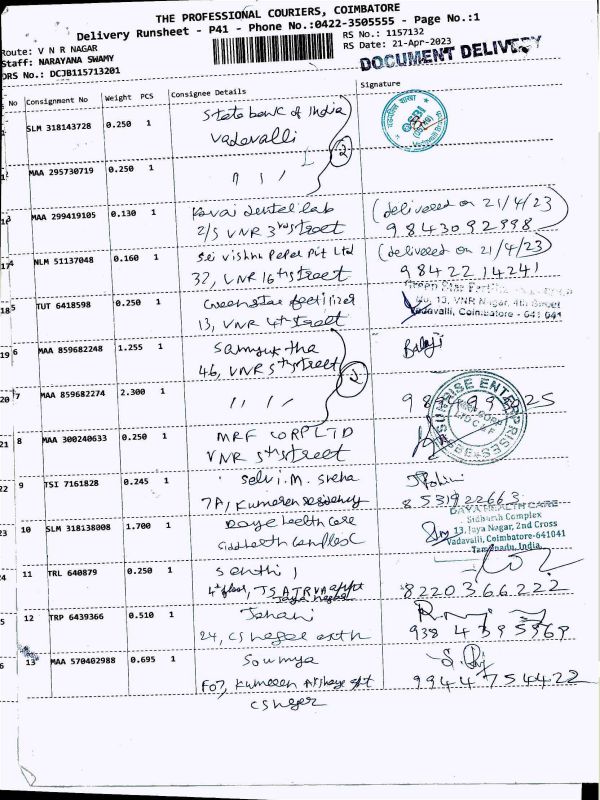 THE PROFESSIONAL COURIERS, COIMBATORE
Delivery Runsheet - P41 - Phone No.:0422-3505555 - Page No.:1
Route: V N R NAGAR
RS No.: 1157132
Staff: NARAYANA SWAMY
RS Date: 21-Apr-2023
DRS No.: DCJB115713201
DOCUMENT DELIVERY
No Consignment No Weight PCS Consignee Details Signature
SLM 318143728 0.250 1 State bank of India
Vadavalli
2
MAA 295730719 0.250 1 " " "
3 MAA 299419105 0.130 1 Kovai dental lab (delivered on 21/4/23)
2/5 VNR 3rd street 9843092998
4 NLM 51137048 0.160 1 Sri Vishnu Paper Pit Ltd (delivered on 21/4/23)
32, VNR 16th street 9842214241
5 TUT 6418598 0.250 1 Greenstar fertilizer Green Star
13, VNR 4th street No. 13, VNR Nagar, 4th Street
Vadavalli, Coimbatore - 641 041
6 MAA 859682248 1.255 1 Samyuktha Balaji
46, VNR 5th street
2
7 MAA 859682274 2.300 1 " " "
SUNRISE ENTERPRISES
8 MAA 300240633 0.250 1 MRF CORP LTD
VNR 5th street
9 TSI 7161828 0.245 1 Selvi. M. Sneha
7A, Kumaran residency 8531922663
10 SLM 318138008 1.700 1 Daya health care DAYA HEALTH CARE
Siddharth Complex Sidharth Complex
13, Jaya Nagar, 2nd Cross
Vadavalli, Coimbatore-641041
Tamilnadu, India.
11 TRL 640879 0.250 1 Senthil
4th floor, 8220366222
Jaya nagar
12 TRP 6439366 0.510 1 Johani
24, CS nagar 938 4395969
13 MAA 570402988 0.695 1 Soumya
F07, Kumaran Akshaya apt 9944754422
CS nagar